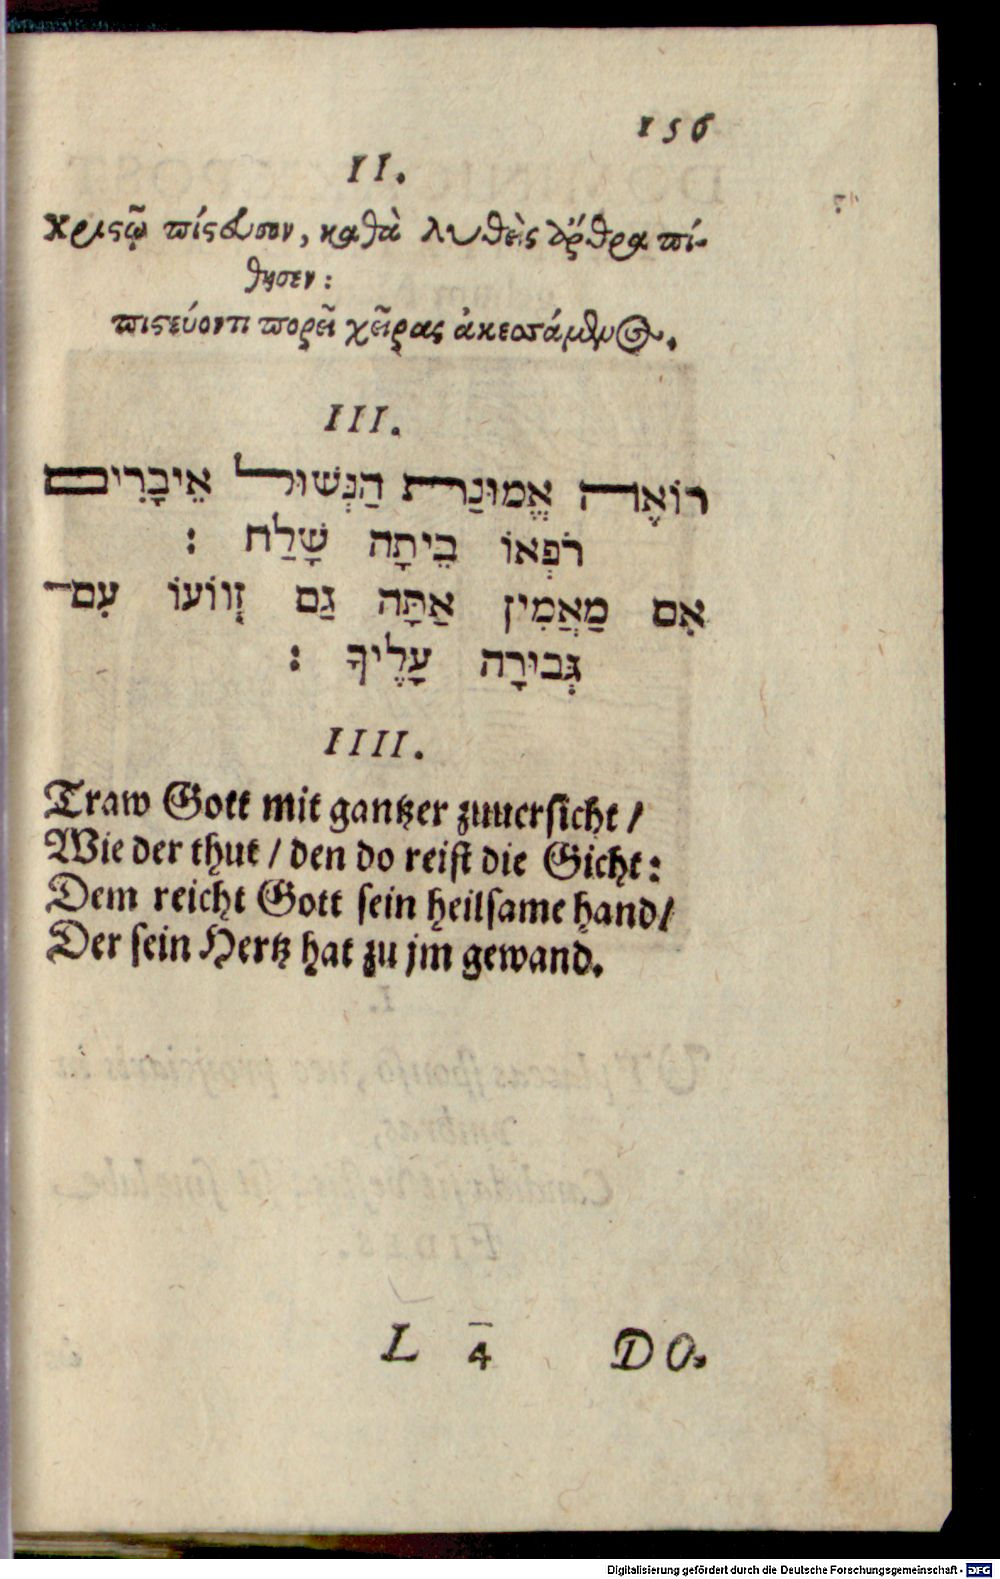 156
II.
Χριστῷ πίστευσον, καθὰ λυθεὶς ἄρθρα πί-
θησεν:
πιστεύοντι πορεῖ χεῖρας ἀκεσσάμενος.
III.
רוֹאֶה אֱמוּנַת הַנְּשׁוּל אֵיבָרִים
רֹפְאוֹ בֵיתָה שָׁלַח :
אִם מַאֲמִין אַתָּה גַם זְווֹעוֹ עִם
גְּבוּרָה עָלֶיךָ :
IIII.
Traw Gott mit gantzer zuuersicht /
Wie der thut / den do reist die Gicht:
Dem reicht Gott sein heilsame hand/
Der sein Hertz hat zu jm gewand.
L 4 DO.
Digitalisierung gefördert durch die Deutsche Forschungsgemeinschaft - DFG